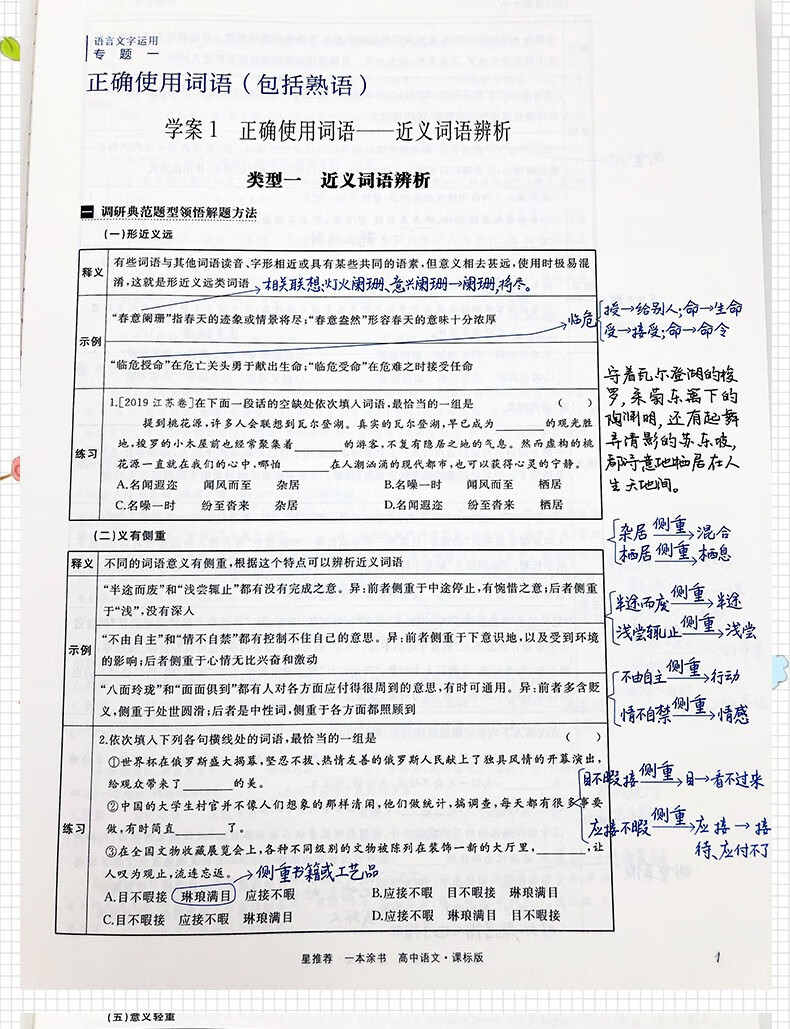 语言文字运用
专 题 一
正确使用词语（包括熟语）
学案1 正确使用词语——近义词语辨析
类型一 近义词语辨析
一 调研典范题型领悟解题方法
（一）形近义远
释义
有些词语与其他词语读音、字形相近或具有某些共同的语素，但意义相去甚远，使用时极易混
淆，这就是形近义远类词语
相关联想：灯火阑珊、意兴阑珊→阑珊，将尽。
示例
“春意阑珊”指春天的迹象或情景将尽；“春意盎然”形容春天的意味十分浓厚
临危
授→给别人；命→生命
受→接受；命→命令
“临危授命”在危亡关头勇于献出生命；“临危受命”在危难之时接受任命
练习
1.[2019江苏卷]在下面一段话的空缺处依次填入词语，最恰当的一组是 （ ）
提到桃花源，许多人会联想到瓦尔登湖。真实的瓦尔登湖，早已成为________的观光胜
地，梭罗的小木屋前也经常聚集着________的游客，不复有隐居之地的气息。然而虚构的桃
花源一直就在我们的心中，哪怕________在人潮汹涌的现代都市，也可以获得心灵的宁静。
A.名闻遐迩 闻风而至 杂居 B.名噪一时 闻风而至 栖居
C.名噪一时 纷至沓来 杂居 D.名闻遐迩 纷至沓来 栖居
守着瓦尔登湖的梭
罗，采菊东篱下的
陶渊明，还有起舞
弄清影的苏东坡，
都诗意地栖居在人
生天地间。
杂居 侧重→混合
栖居 侧重→栖息
（二）义有侧重
释义
不同的词语意义有侧重，根据这个特点可以辨析近义词语
示例
“半途而废”和“浅尝辄止”都有没有完成之意。异：前者侧重于中途停止，有惋惜之意；后者侧重
于“浅”，没有深入
半途而废 侧重→半途
浅尝辄止 侧重→浅尝
“不由自主”和“情不自禁”都有控制不住自己的意思。异：前者侧重于下意识地，以及受到环境
的影响；后者侧重于心情无比兴奋和激动
不由自主 侧重→行动
情不自禁 侧重→情感
“八面玲珑”和“面面俱到”都有人对各方面应付得很周到的意思，有时可通用。异：前者多含贬
义，侧重于处世圆滑；后者是中性词，侧重于各方面都照顾到
练习
2.依次填入下列各句横线处的词语，最恰当的一组是 （ ）
①世界杯在俄罗斯盛大揭幕，坚忍不拔、热情友善的俄罗斯人民献上了独具风情的开幕演出，
给观众带来了________的美。
②中国的大学生村官并不像人们想象的那样清闲，他们做统计，搞调查，每天都有很多事要
做，有时简直________了。
③在全国文物收藏展览会上，各种不同级别的文物被陈列在装饰一新的大厅里，________，让
人叹为观止，流连忘返。
侧重书籍或工艺品
A.目不暇接 琳琅满目 应接不暇 B.应接不暇 目不暇接 琳琅满目
C.目不暇接 应接不暇 琳琅满目 D.应接不暇 琳琅满目 目不暇接
目不暇接 侧重→目→看不过来
应接不暇 侧重→应接→接
待、应付不了
星推荐·一本涂书 高中语文·课标版
1
（五）意义轻重